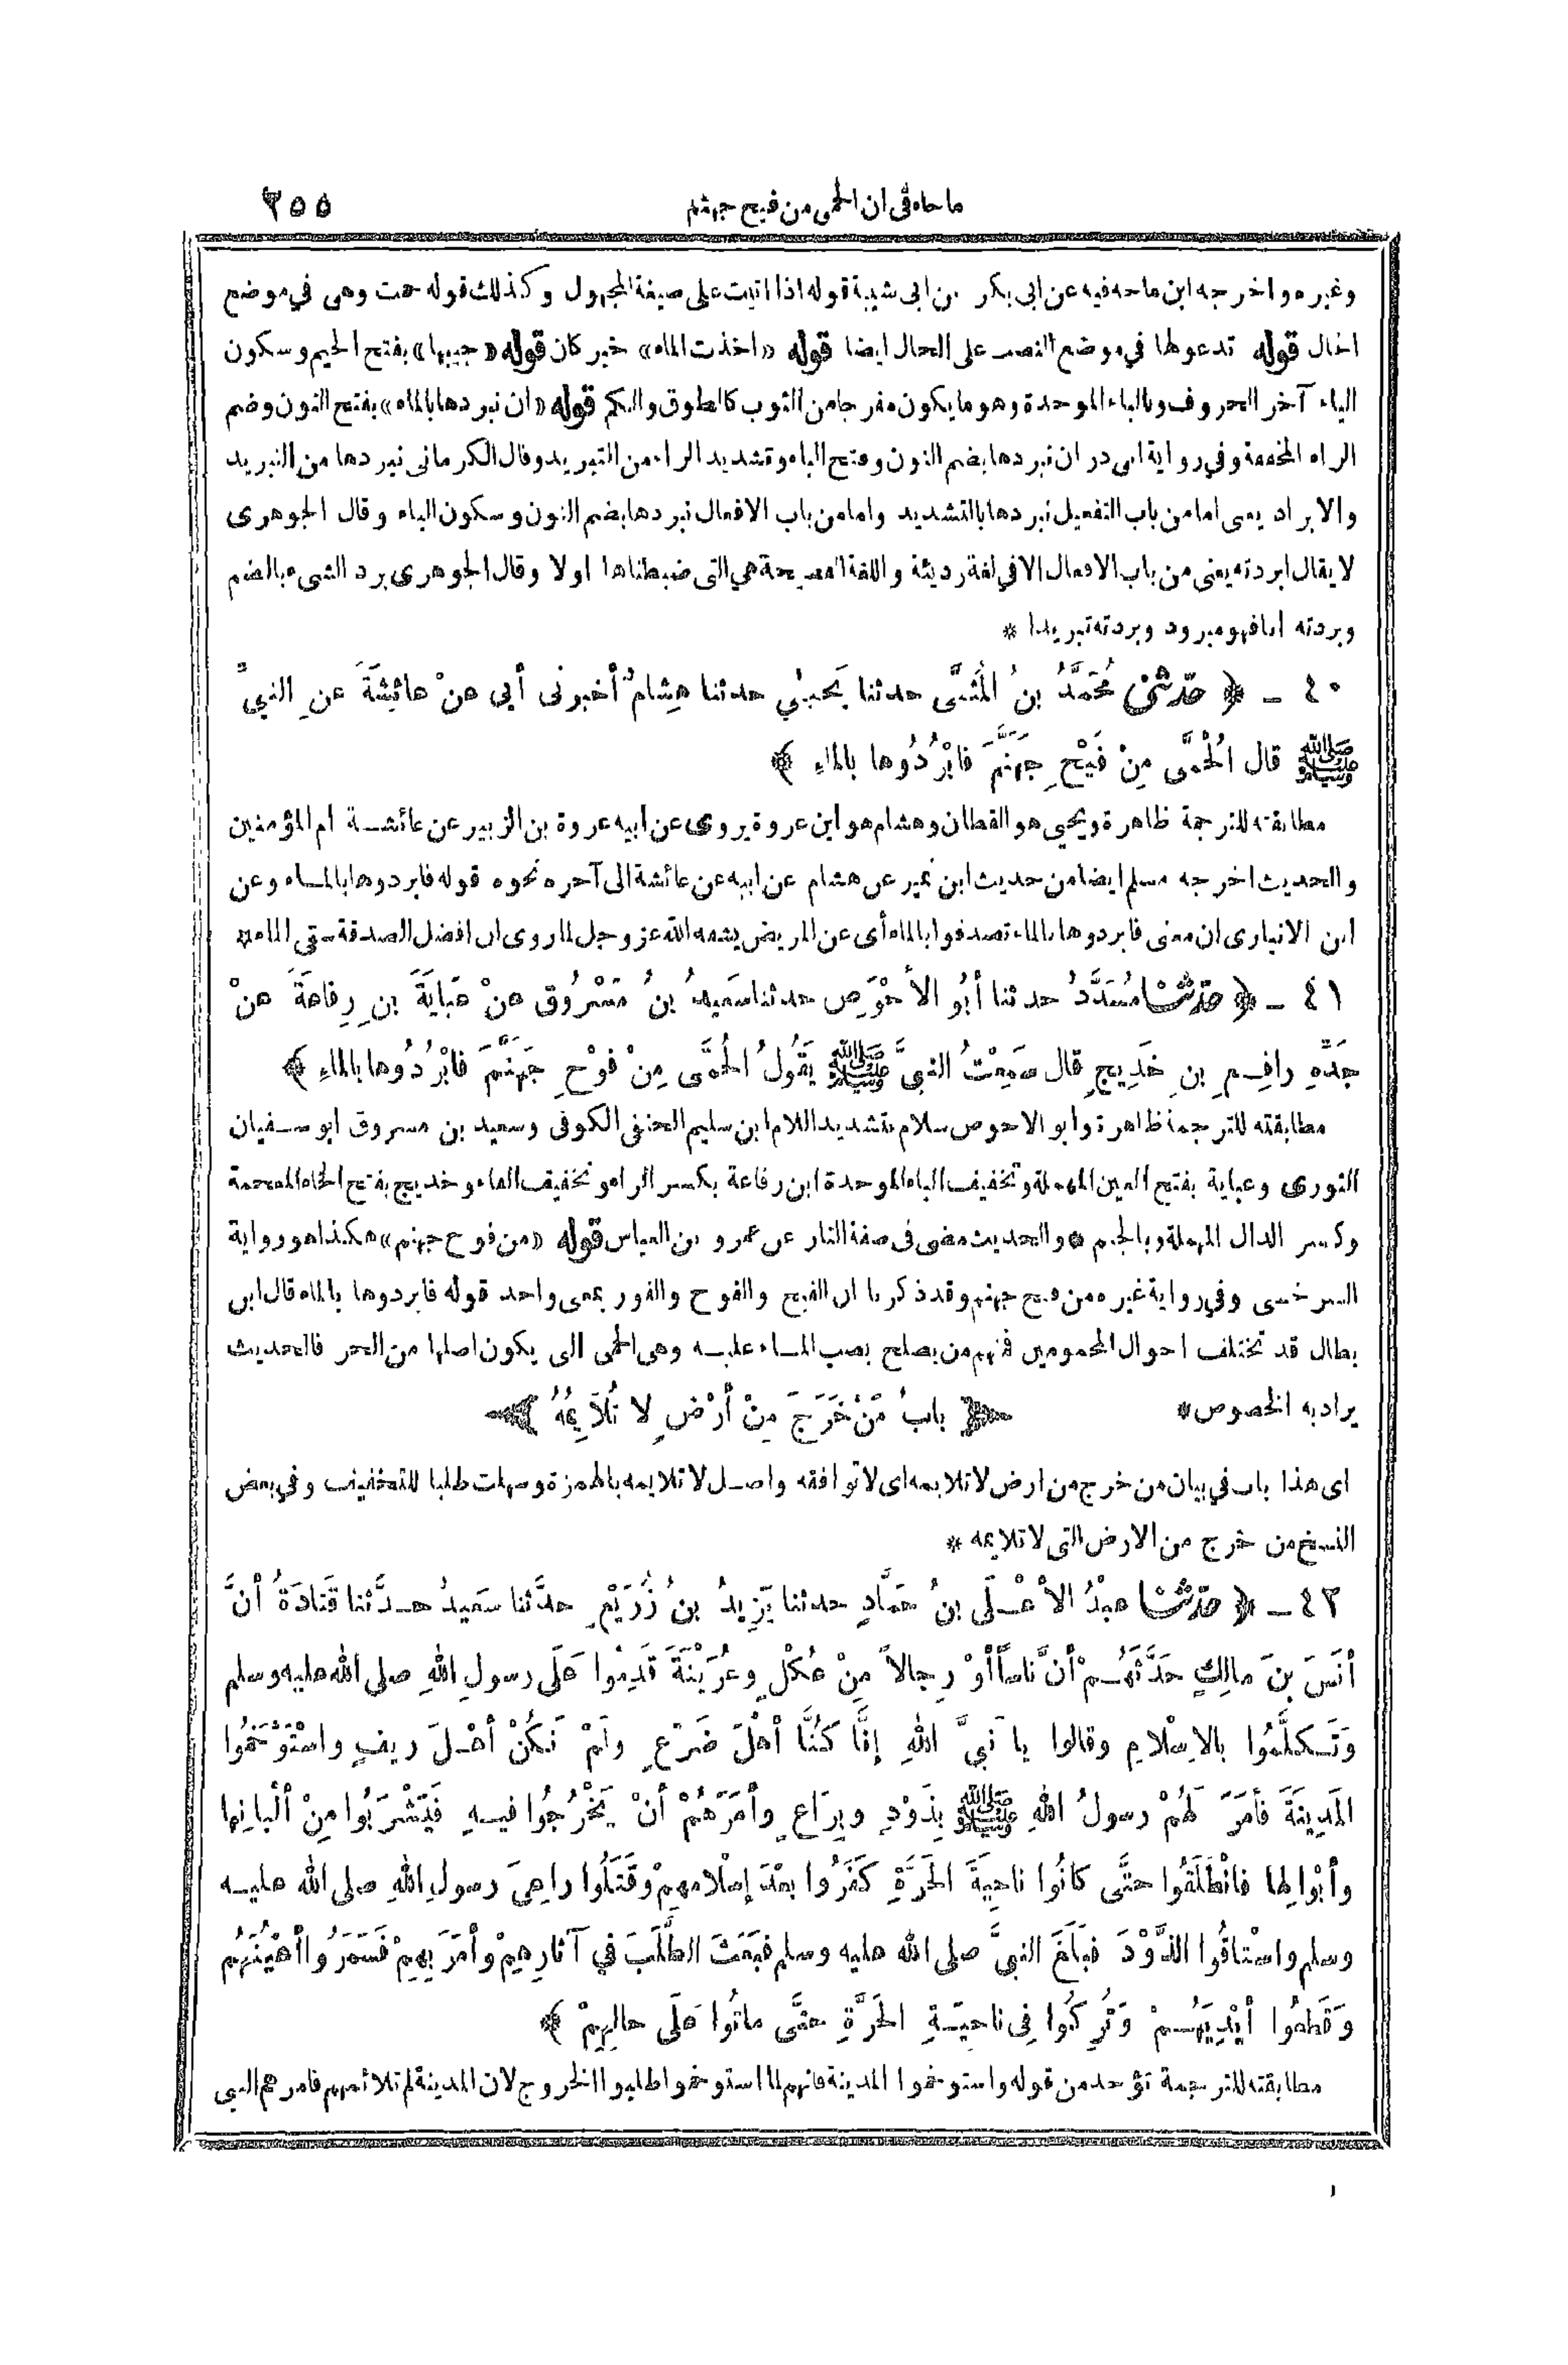 ما جاء في ان الحمى من فيح جهنم ٢٥٥
وغيره واخرجه ابن ماجه فيه عن ابى بكر بن ابى شيبة قوله اذا اتيت على صيغة المجهول وكذلك قوله حمت وهى في موضع
الحال قوله تدعولها في موضع النصب على الحال ايضا قوله «اخذت الماء» خبر كان قوله «جيبها» بفتح الجيم وسكون
الياء آخر الحروف وبالباء الموحدة وهو ما يكون مفرجا من الثوب كالطوق والكم قوله «ان نبردها بالماء» بفتح النون وضم
الراء المخففة وفي رواية ابى ذر ان نبردها بضم النون وفتح الباء وتشديد الراء من التبريد وقال الكرمانى نبردها من التبريد
والابراد يعنى اما من باب التفعيل نبردها بالتشديد واما من باب الافعال نبردها بضم النون وسكون الباء وقال الجوهرى
لا يقال ابردته يعنى من باب الافعال الا في لغة رديئة واللغة الفصيحة هي التى ضبطناها اولا وقال الجوهرى برد الشىء بالضم
وبردته انا فهو مبرود وبردته تبريدا *
٤٠ - ﴿ حدثنى مُحَمَّدُ بنُ الْمُثَنَّى حدثنا يَحيىٰي حدثنا هِشامٌ أخبرنى أبى عنْ عائِشَةَ عنِ النبيِّ
ﷺ قال الْحُمَّى مِنْ فَيْحِ جَهَنَّمَ فابْرُدُوها بالماءِ ﴾
مطابقته للترجمة ظاهرة ويحيى هو القطان وهشام هو ابن عروة يروى عن ابيه عروة بن الزبير عن عائشة ام المؤمنين
والحديث اخرجه مسلم ايضا من حديث ابن نمير عن هشام عن ابيه عن عائشة الى آخره نحوه قوله فابردوها بالماء وعن
ابن الانبارى ان معنى فابردوها بالماء تصدقوا بالماء أى عن المريض يشفه الله عز وجل لما روى ان افضل الصدقة سقى الماء *
٤١ - ﴿ حدثنا مُسَدَّدٌ حدثنا أبُو الأحْوَصِ حدثنا سَعِيدُ بنُ مَسْرُوقٍ عنْ عَبايَةَ بنِ رِفاعَةَ عنْ
جَدِّهِ رافِعِ بنِ خَدِيجٍ قال سَمِعْتُ النبيَّ ﷺ يَقُولُ الْحُمَّى مِنْ فَوْحِ جَهَنَّمَ فابْرُدُوها بالماءِ ﴾
مطابقته للترجمة ظاهرة وابو الاحوص سلام بتشديد اللام ابن سليم الحنفى الكوفى وسعيد بن مسروق ابو سفيان
الثورى وعباية بفتح العين المهملة وتخفيف الباء الموحدة ابن رفاعة بكسر الراء وتخفيف الفاء وخديج بفتح الخاء المعجمة
وكسر الدال المهملة وبالجيم * والحديث مضى فى صفة النار عن عمرو بن العباس قوله «من فوح جهنم» هكذا هو رواية
السرخسى وفي رواية غيره من فيح جهنم وقد ذكرنا ان الفيح والفوح والفور بمعنى واحد قوله فابردوها بالماء قال ابن
بطال قد تختلف احوال المحمومين فمنهم من يصلح بصب الماء عليه وهى الحمى التى يكون اصلها من الحر فالحديث
يراد به الخصوص *
﴿ بابُ مَنْ خَرَجَ مِنْ أرْضٍ لا تُلاَيِمُهُ ﴾
اى هذا باب في بيان من خرج من ارض لا تلايمه اى لا توافقه واصل لا تلايمه بالهمزة وسهلت طلبا للتخفيف وفي بعض
النسخ من خرج من الارض التى لا تلايمه *
٤٢ - ﴿ حدثنا عبْدُ الأعْلَى بنُ حَمَّادٍ حدثنا يَزِيدُ بنُ زُرَيْعٍ حدَّثنا سَعِيدٌ حدَّثنا قَتادَةُ أنَّ
أنَسَ بنَ مالِكٍ حَدَّثَهُمْ أنَّ ناساً أوْ رِجالاً مِنْ عُكْلٍ وعُرَيْنَةَ قَدِمُوا عَلَى رسولِ اللهِ صلى الله عليه وسلم
وَتَكلَّمُوا بالإسْلامِ وقالوا يا نَبيَّ اللهِ إنَّا كُنَّا أهْلَ ضَرْعٍ ولَمْ نَكُنْ أهْلَ رِيفٍ واسْتَوْخَمُوا
الْمَدِينَةَ فأمَرَ لَهُمْ رسولُ اللهِ ﷺ بِذَوْدٍ وبِرَاعٍ وأمَرَهُمْ أنْ يَخْرُجُوا فيهِ فَيَشْرَبُوا مِنْ ألْبانِها
وأبْوالِها فانْطَلَقُوا حتَّى كانُوا ناحِيَةَ الحَرَّةِ كَفَرُوا بعْدَ إسْلامِهِمْ وقَتَلُوا راعِيَ رسولِ اللهِ صلى الله عليه
وسلم واسْتاقُوا الذَّوْدَ فبَلَغَ النبيَّ صلى الله عليه وسلم فبَعَثَ الطَّلَبَ في آثارِهِمْ وأمَرَ بِهِمْ فَسَمَرُوا أعْيُنَهُمْ
وَقَطَعُوا أيْدِيَهُمْ وَتُرِكُوا فِى ناحِيَةِ الحَرَّةِ حتَّى ماتُوا عَلَى حالِهِمْ ﴾
مطابقته للترجمة تؤخذ من قوله واستوخموا المدينة فانهم لما استوخموا طلبوا الخروج لان المدينة لم تلائمهم فامرهم النبى